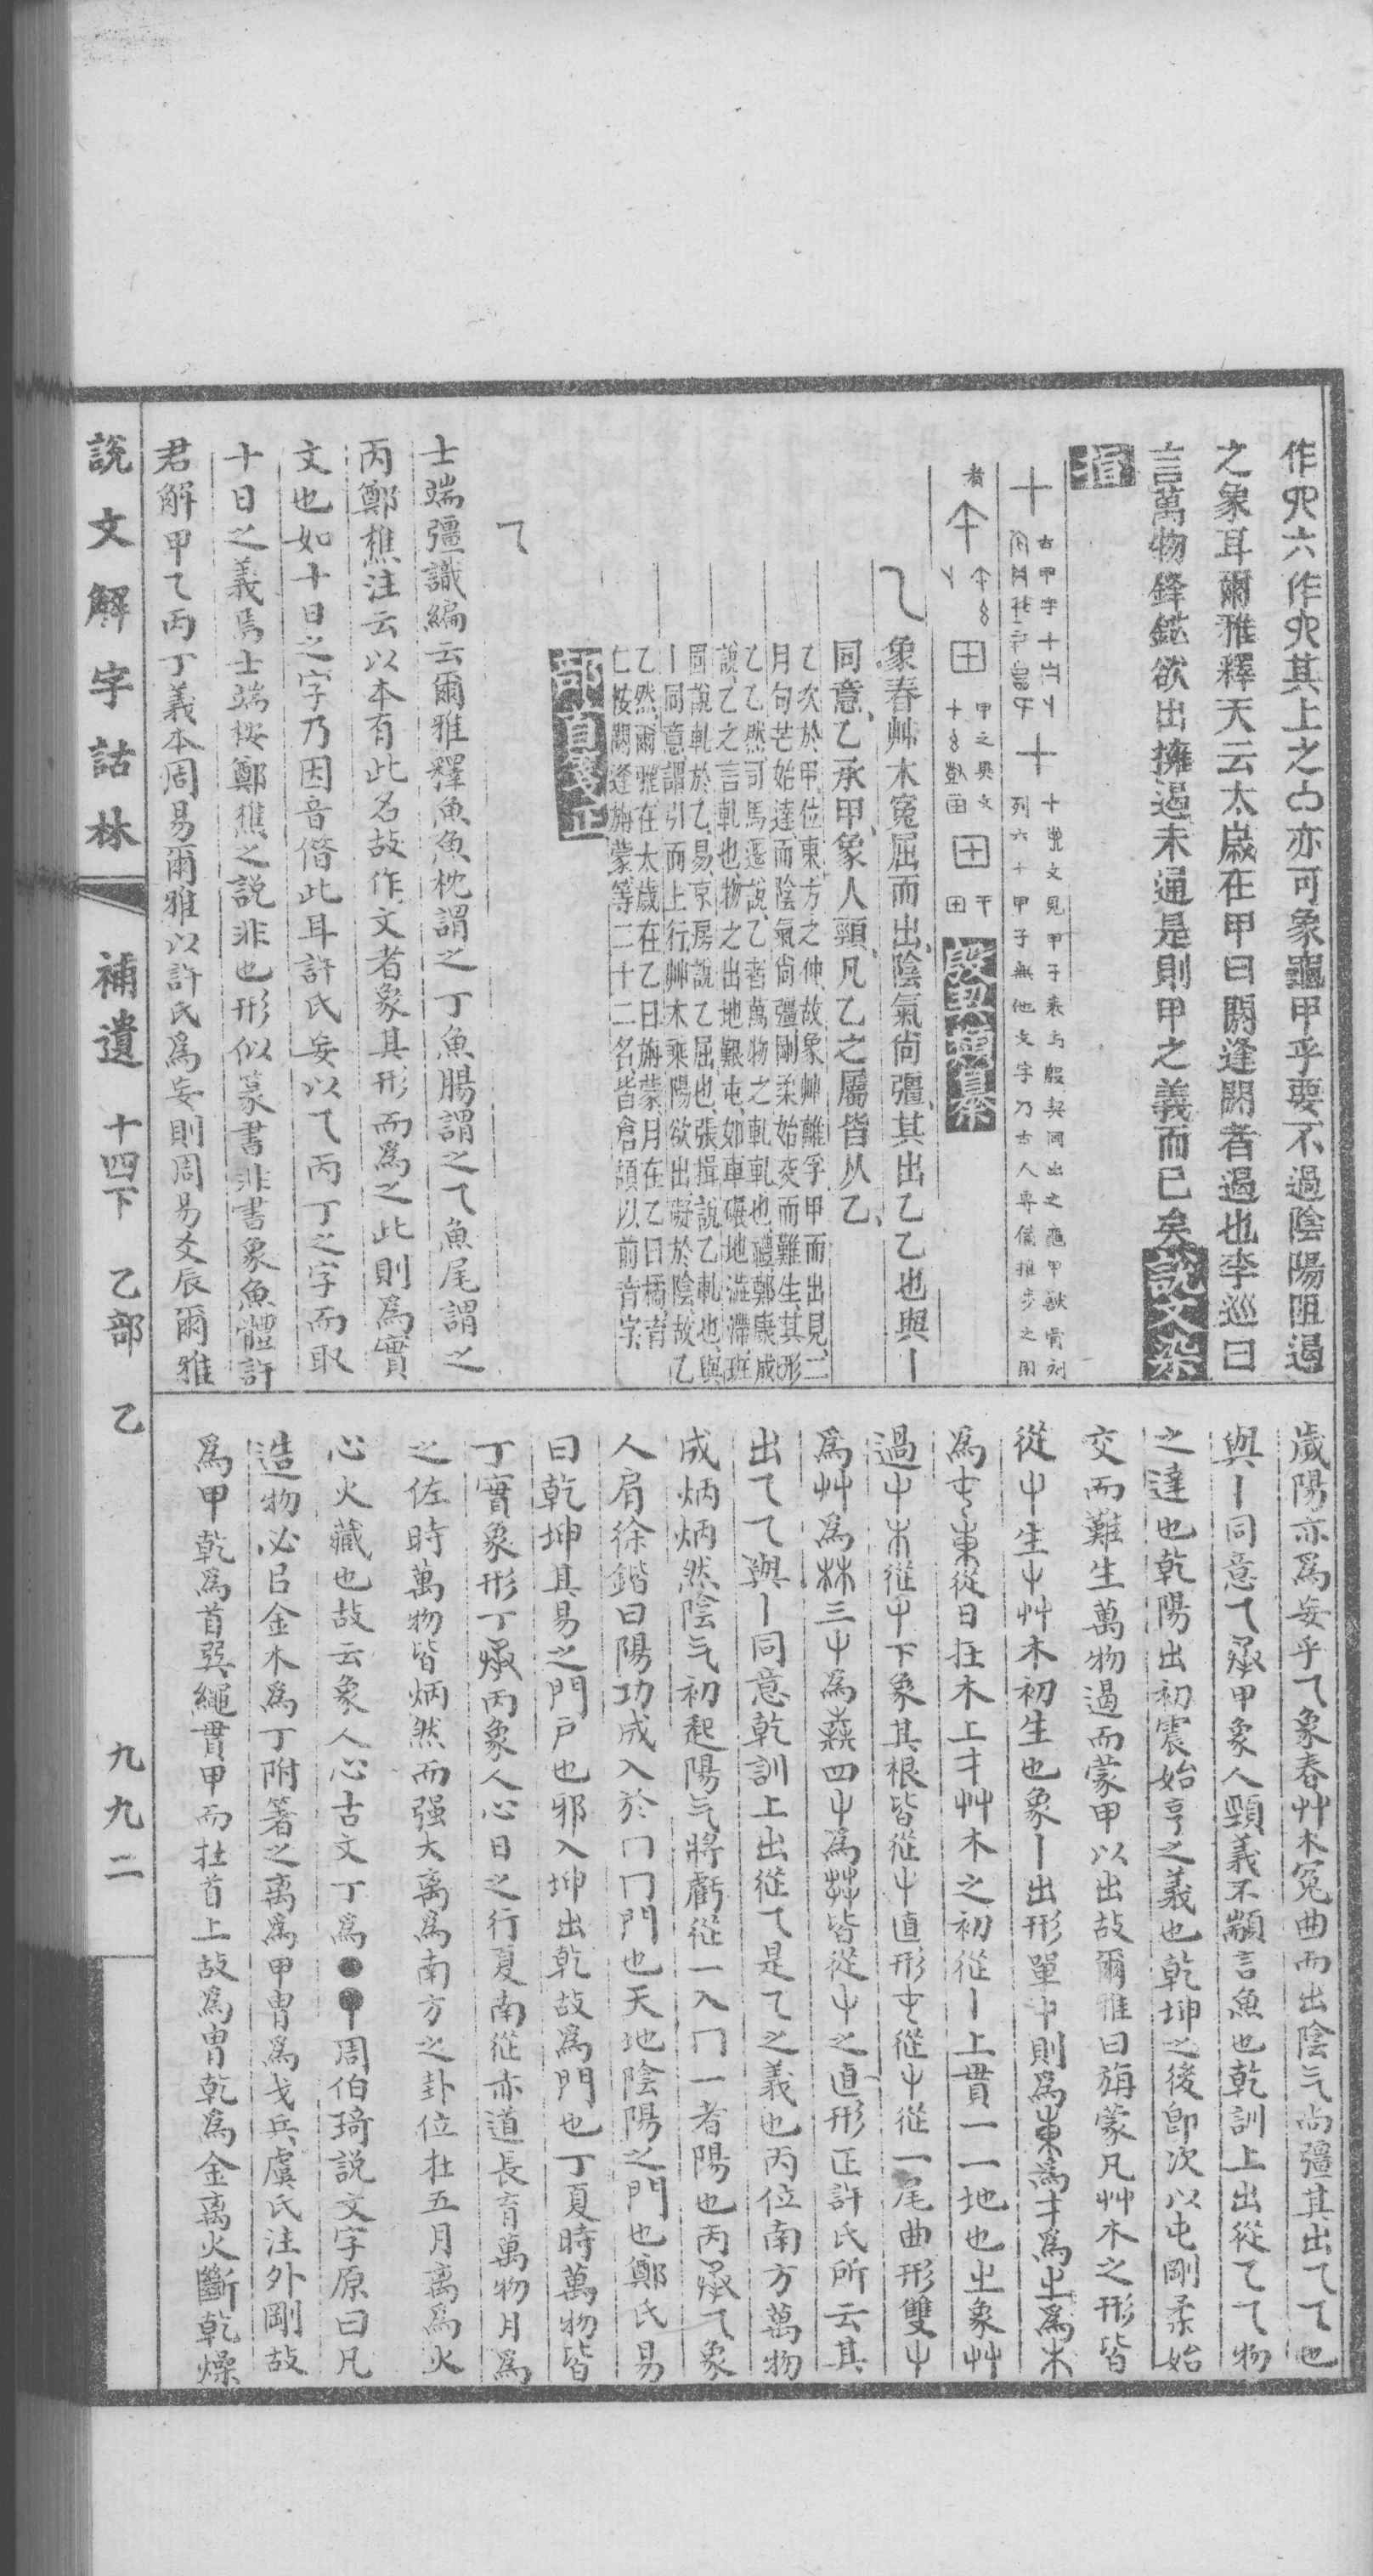 作𠔁六作𠔁其上之凸亦可象龜甲乎要不過陰陽阻遏
之象耳爾雅釋天云太歲在甲曰閼逢閼者遏也李巡曰
言萬物鋒鋩欲出擁遏未通是則甲之義而已矣
象春艸木冤屈而出陰氣尙彊其出乙乙也與丨
同意乙承甲象人頸凡乙之屬皆从乙
乙次於甲位東方之仲故象艸離孚甲而出見二
月句芒始達而陰氣尙彊剛柔始交而難生其形
乙乙然司馬遷說乙者萬物之軋軋也禮鄭康成
說乙之言軋也物之出地艱屯如車碾地澁滯班
固說軋於乙易京房說乙屈也張揖說乙軋也與
丨同意謂引而上行艸木乘陽欲出礙於陰故乙
乙然爾雅在太歲在乙曰旃蒙月在乙曰橘育
七桉閼逢旃蒙等二十二名皆倉頡以前音字
士端彊識編云爾雅釋魚魚枕謂之丁魚腸謂之乁魚尾謂之
丙鄭樵注云以本有此名故作文者象其形而爲之此則爲實
文也如十日之字乃因音偕此耳許氏妄以乁丙丁之字而取
十日之義焉士端桉鄭樵之説非也形似篆書非書象魚體許
君解甲乁丙丁義本周易爾雅以許氏爲妄則周易爻辰爾雅
歲陽亦爲妄乎乁象春艸木冤曲而出陰气尚彊其出乁乁也
與丨同意乁承甲象人頸義不顓言魚也乾訓上出從乁乁物
之達也乾陽出初震始亨之義也乾坤之後卽次以屯剛柔始
交而難生萬物遏而蒙甲以出故爾雅曰旃蒙凡艸木之形皆
從屮生屮艸木初生也象丨出形單屮則爲東爲才爲㞢爲木
爲屯東從日在木上才艸木之初從丨上貫一一地也㞢象艸
過屮木從屮下象其根皆從屮直形屯從屮從一尾曲形雙屮
爲艸爲林三屮爲森四屮爲茻皆從屮之直形正許氏所云其
出乁乁與丨同意乾訓上出從乁是乁之義也丙位南方萬物
成炳炳然陰气初起陽气將虧從一入冂一者陽也丙承乁象
人肩徐鍇曰陽功成入於冂冂門也天地陰陽之門也鄭氏易
曰乾坤其易之門戶也邪入坤出乾故爲門也丁夏時萬物皆
丁實象形丁承丙象人心日之行夏南從赤道長育萬物月爲
之佐時萬物皆炳然而强大离爲南方之卦位在五月离爲火
心火藏也故云象人心古文丁爲●周伯琦説文字原曰凡
造物必㠯金木爲丁附箸之离爲甲冑爲戈兵虞氏注外剛故
爲甲乾爲首巽繩貫甲而在首上故爲冑乾爲金离火斷乾燥
説文解字詁林
補遺
十四下
乙部
乙
九九二